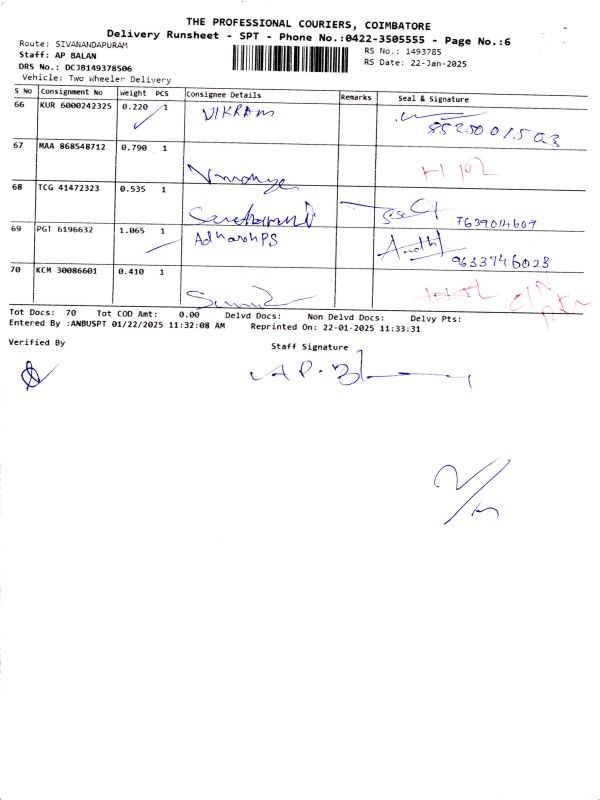 THE PROFESSIONAL COURIERS, COIMBATORE
Delivery Runsheet - SPT - Phone No.:0422-3505555 - Page No.:6
Route: SIVANANDAPURAM
RS No.: 1493785
Staff: AP BALAN
RS Date: 22-Jan-2025
DRS No.: DCJB149378506
Vehicle: Two Wheeler Delivery
S No Consignment No Weight PCS Consignee Details Remarks Seal & Signature
66 KUR 6000242325 0.220 1 VIKRAM 8525001503
67 MAA 868548712 0.790 1
68 TCG 41472323 0.535 1 7639014609
69 PGT 6196632 1.065 1 Adharsh PS 9633946023
70 KCM 30086601 0.410 1
Tot Docs: 70 Tot COD Amt: 0.00 Delvd Docs: Non Delvd Docs: Delvy Pts:
Entered By :ANBUSPT 01/22/2025 11:32:08 AM Reprinted On: 22-01-2025 11:33:31
Verified By
Staff Signature